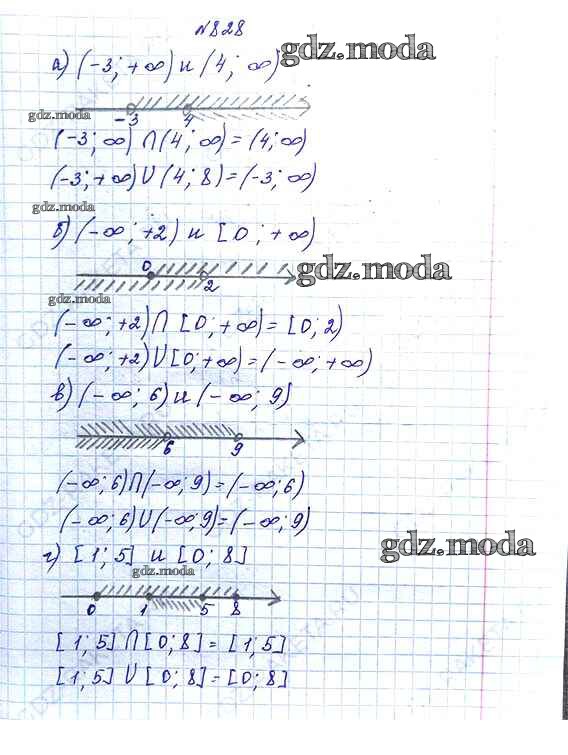 №828
а) (-3; +∞) и (4; ∞)
gdz.moda
gdz.moda
-3 4
(-3; ∞) ∩ (4; ∞) = (4; ∞)
(-3; +∞) U (4; 8) = (-3; ∞)
gdz.moda
б) (-∞; +2) и [0; +∞)
0 2
gdz.moda
gdz.moda
(-∞; +2) ∩ [0; +∞) = [0; 2)
(-∞; +2) U [0; +∞) = (-∞; +∞)
в) (-∞; 6) и (-∞; 9)
6 9
(-∞; 6) ∩ (-∞; 9) = (-∞; 6)
(-∞; 6) U (-∞; 9) = (-∞; 9)
gdz.moda
г) [1; 5] и [0; 8]
gdz.moda
0 1 5 8
[1; 5] ∩ [0; 8] = [1; 5]
[1; 5] U [0; 8] = [0; 8]